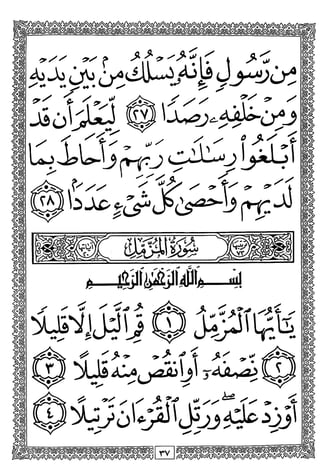 مِن رَّسُولٍ فَإِنَّهُۥ يَسْلُكُ مِنۢ بَيْنِ يَدَيْهِ
وَمِنْ خَلْفِهِۦ رَصَدًا ٢٧ لِّيَعْلَمَ أَن قَدْ
أَبْلَغُوا۟ رِسَالَاتِ رَبِّهِمْ وَأَحَاطَ بِمَا
لَدَيْهِمْ وَأَحْصَىٰ كُلَّ شَىْءٍ عَدَدًۢا ٢٨
سُورَةُ المُزَّمِّل
بِسْمِ اللَّهِ الرَّحْمَٰنِ الرَّحِيمِ
يَٰٓأَيُّهَا الْمُزَّمِّلُ ١ قُمِ الَّيْلَ إِلَّا قَلِيلًا
٢ نِّصْفَهُۥٓ أَوِ انقُصْ مِنْهُ قَلِيلًا ٣
أَوْ زِدْ عَلَيْهِ وَرَتِّلِ الْقُرْءَانَ تَرْتِيلًا ٤
٣٧